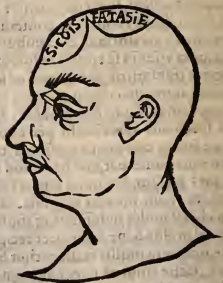 ·S·COIS·
FATASIE